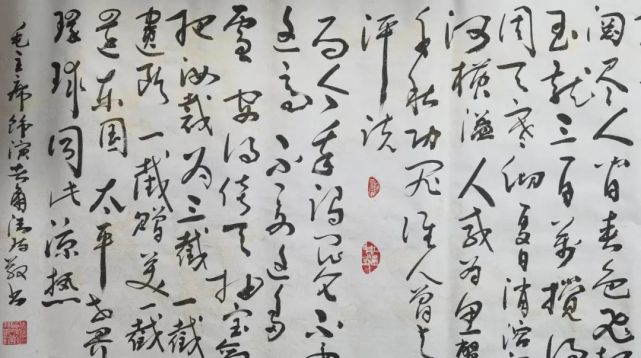 阅尽人间春色飞起
玉龙三百万搅得
周天寒彻夏日消溶
河横溢人或为鱼鳖
千秋功罪谁人曾与
评说
而今我谓昆仑不要
这高不要这多
雪安得倚天抽宝剑
把汝裁为三截一截
遗欧一截赠美一截
还东国太平世界
环球同此凉热
毛主席 敬书